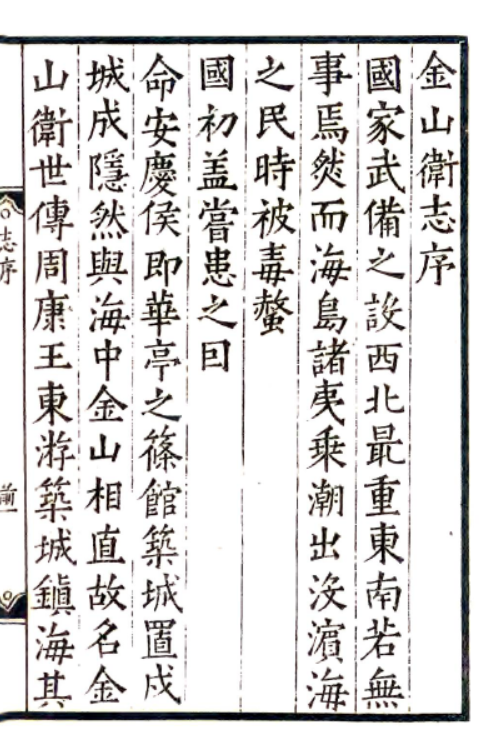 金山衛志序
國家武備之設西北最重東南若無
事焉然而海島諸夷乗潮出没濵海
之民時被毒螫
國初盖嘗患之曰
命安慶侯即華亭之篠館築城置戍
城成隱然與海中金山相直故名金
山衛世傳周康王東游築城鎮海其
志序
前一